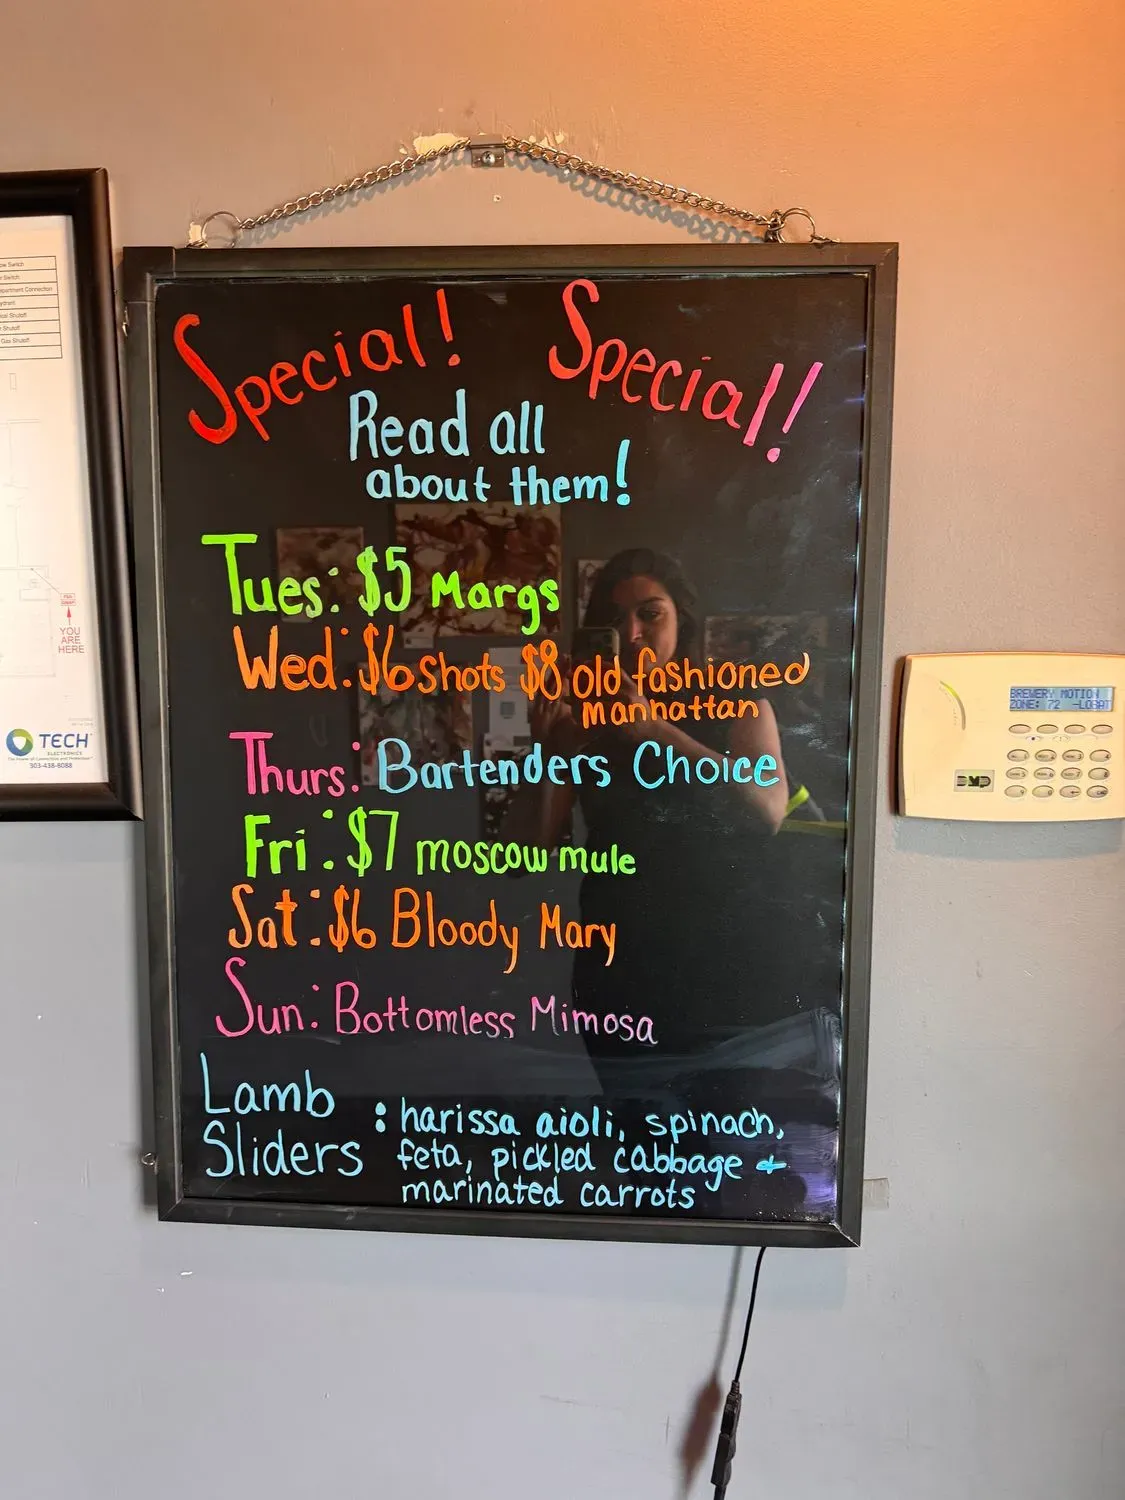 Special! Special!
Read all
about them!
Tues: $5 Margs
Wed: $6 shots $8 old fashioned
Manhattan
Thurs: Bartenders Choice
Fri: $7 moscow mule
Sat: $6 Bloody Mary
Sun: Bottomless Mimosa
Lamb
Sliders
: harissa aioli, spinach,
feta, pickled cabbage +
marinated carrots
Switch
Connection
Shutoff
Shutoff
Gas Shutoff
YOU
ARE
HERE
TECH
ELECTRONICS
303-438-8088
BREWERY MOTION
ZONE: 72 -LOBAT
DMP